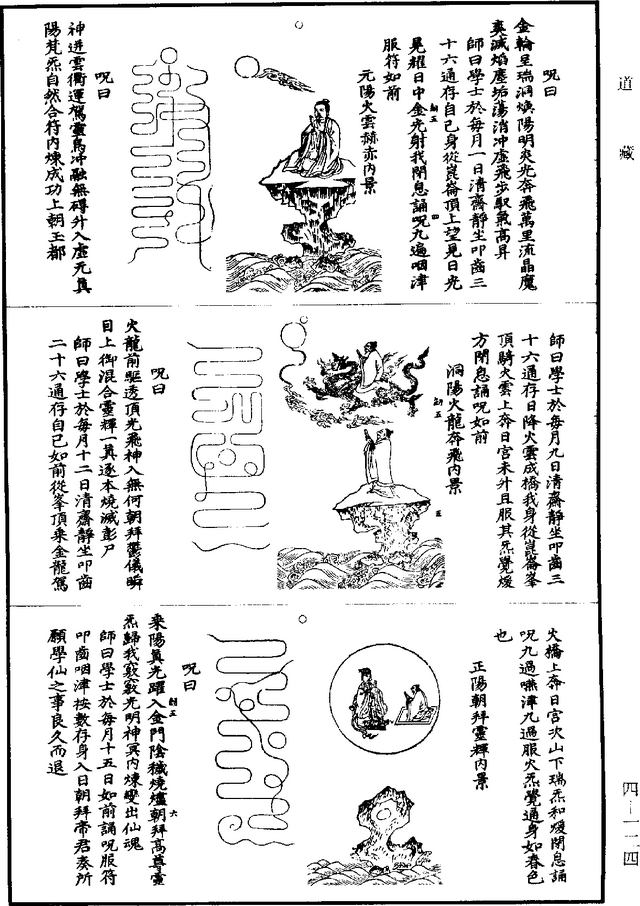 道藏
呪曰
金輪呈瑞洞煥陽明炎光奔飛萬里流晶魔
奚滅焰塵垢蕩消冲虛飛步馭炁高昇
師曰學士於每月一日清齋靜坐叩齒三
十六通存自己身從崑崙頂上望見日光
晃耀日中金光射我閉息誦呪九遍咽津
服符如前
元陽火雲赫赤內景
呪曰
神迸雲衢運駕靈鳥冲融無碍升入虛元真
陽梵炁自然合符內煉成功上朝玉都
師曰學士於每月九日清齋靜坐叩齒三
十六通存日降火雲成橋我身從崑崙峯
頂騎火雲上奔日宮未升且服其炁覺煖
方閉息誦呪如前
洞陽火龍奔飛內景
呪曰
火龍前驅透頂光飛神入無何朝拜靈儀瞬
目上御混合靈輝一真逐本燒滅彭尸
師曰學士於每月十二日清齋靜坐叩齒
二十六通存自己如前從峯頂乘金龍駕
火橋上奔日宮次山下瑞炁和煖閉息誦
呪九過嚥津九過服火炁覺通身如春色
也
正陽朝拜靈輝內景
呪曰
乘陽真光躍入金門陰穢燒爐朝拜高尊靈
炁歸我竅竅光明神冥內煉變出仙魂
師曰學士於每月十五日如前誦呪服符
叩齒咽津按數存身入日朝拜帝君奏所
願學仙之事良久而退
四－一二四